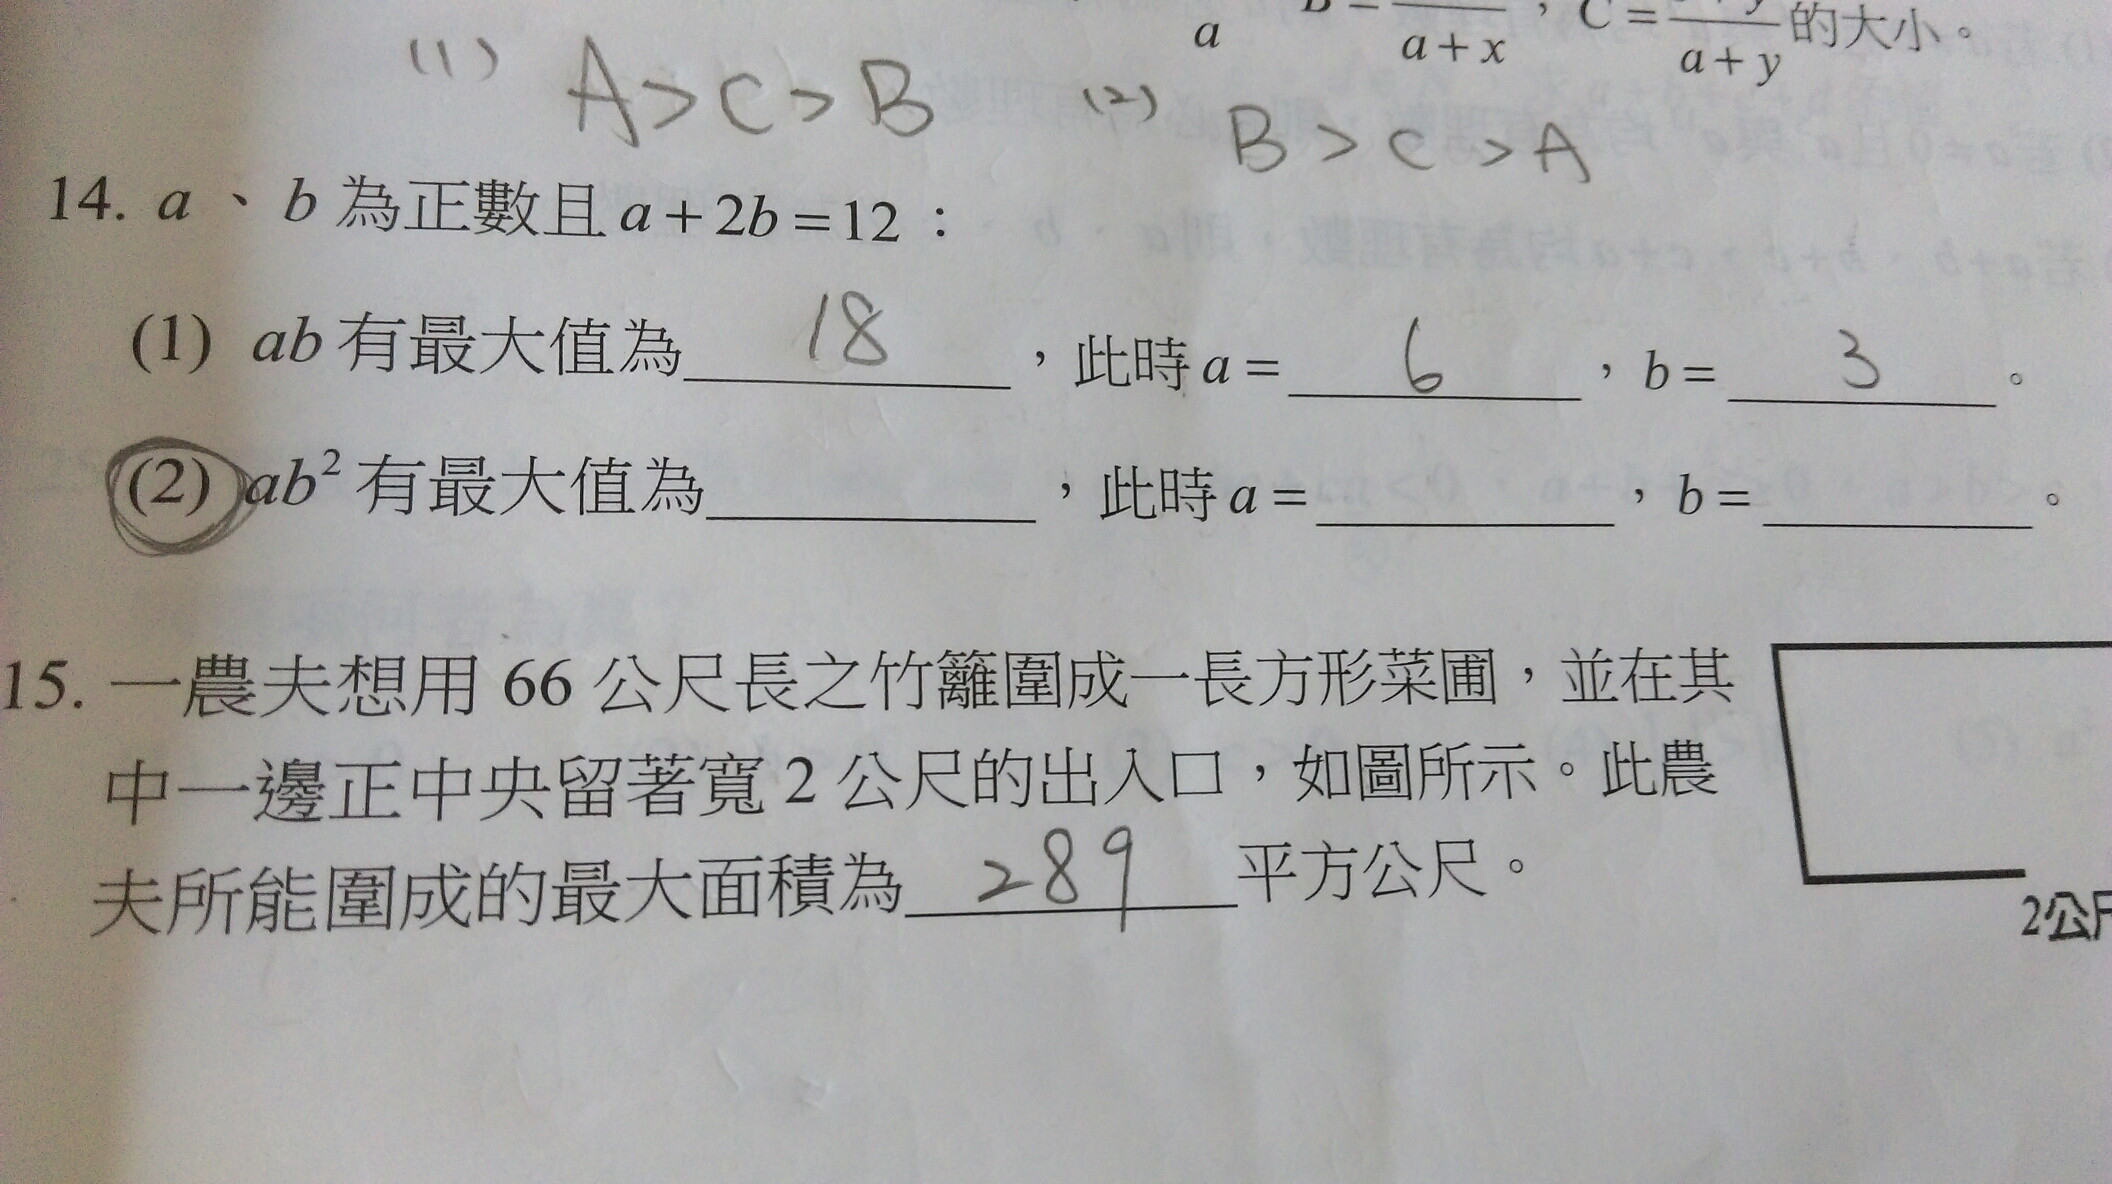 a B = a + x ， C = y a + y 的大小。
(1) A > C > B (2) B > C > A
14. a 、 b 為正數且 a + 2b = 12 ：
(1) ab 有最大值為 18 ，此時 a = 6 ， b = 3 。
(2) ab² 有最大值為______，此時 a = ______， b = ______。
15. 一農夫想用 66 公尺長之竹籬圍成一長方形菜圃，並在其
中一邊正中央留著寬 2 公尺的出入口，如圖所示。此農
夫所能圍成的最大面積為 289 平方公尺。
2公尺